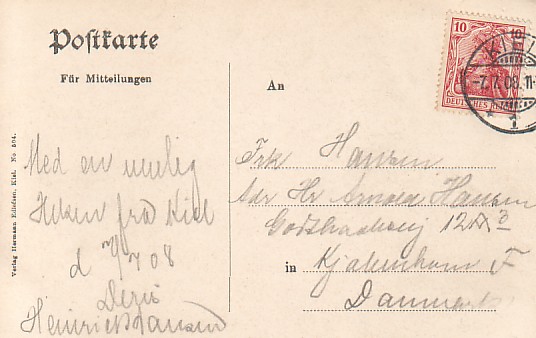 Postkarte
Für Mitteilungen
An
10
DEUTSCHES REICH
KIEL
-7.7.08.11-
Med en venlig
Hilsen fra Kiel
d 7/7 08
Deres
Heinrich Hansen
Frk Hansen
Adr Hr Arnold Hansen
Godthaabsvej 12A 3
in Kjøbenhavn F
Danmark
Verlag Hermann Edlefsen, Kiel. No. 504.